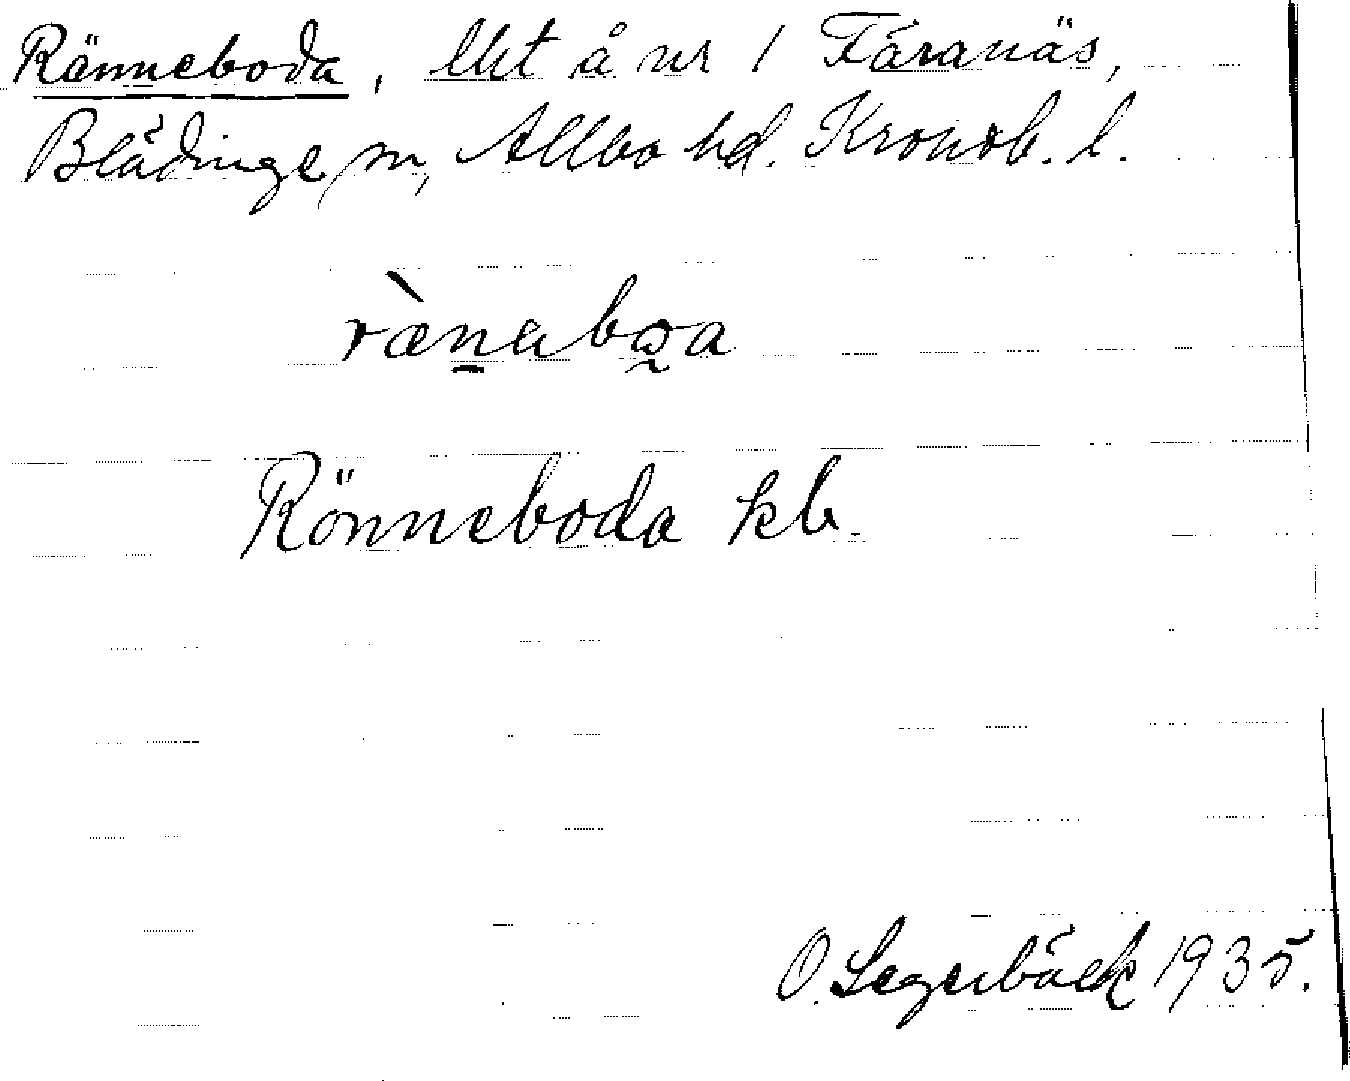 Ränneboda, lht å nr 1 Fåranäs,
Blädinge sn, Allbo hd. Kronob. l.
ræ̀n̠abo̰a
Rönneboda kb.
O. Segerbäck 1935.